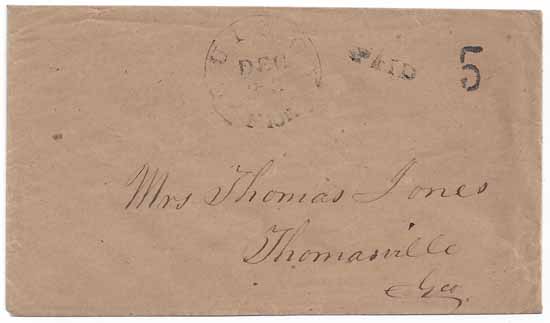 DEC
PAID
5
Mrs Thomas Jones
Thomasville
Ga